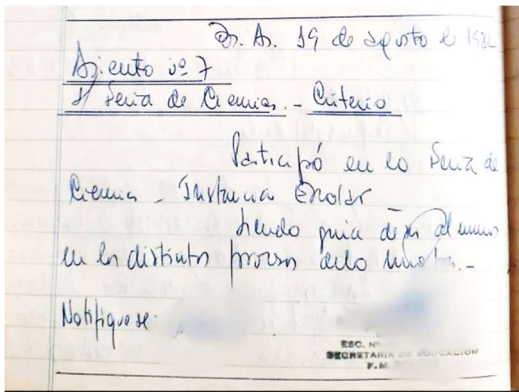 Bs. As. 19 de agosto de 1982
Asiento nº 7
s/ Feria de Ciencias. - Criterio
Participó en la Feria de
Ciencias - Instancia Escolar
siendo guía de sus alumnos
en los distintos procesos de la muestra.-
Notifíquese:
ESC. Nº
SECRETARIA DE EDUCACION